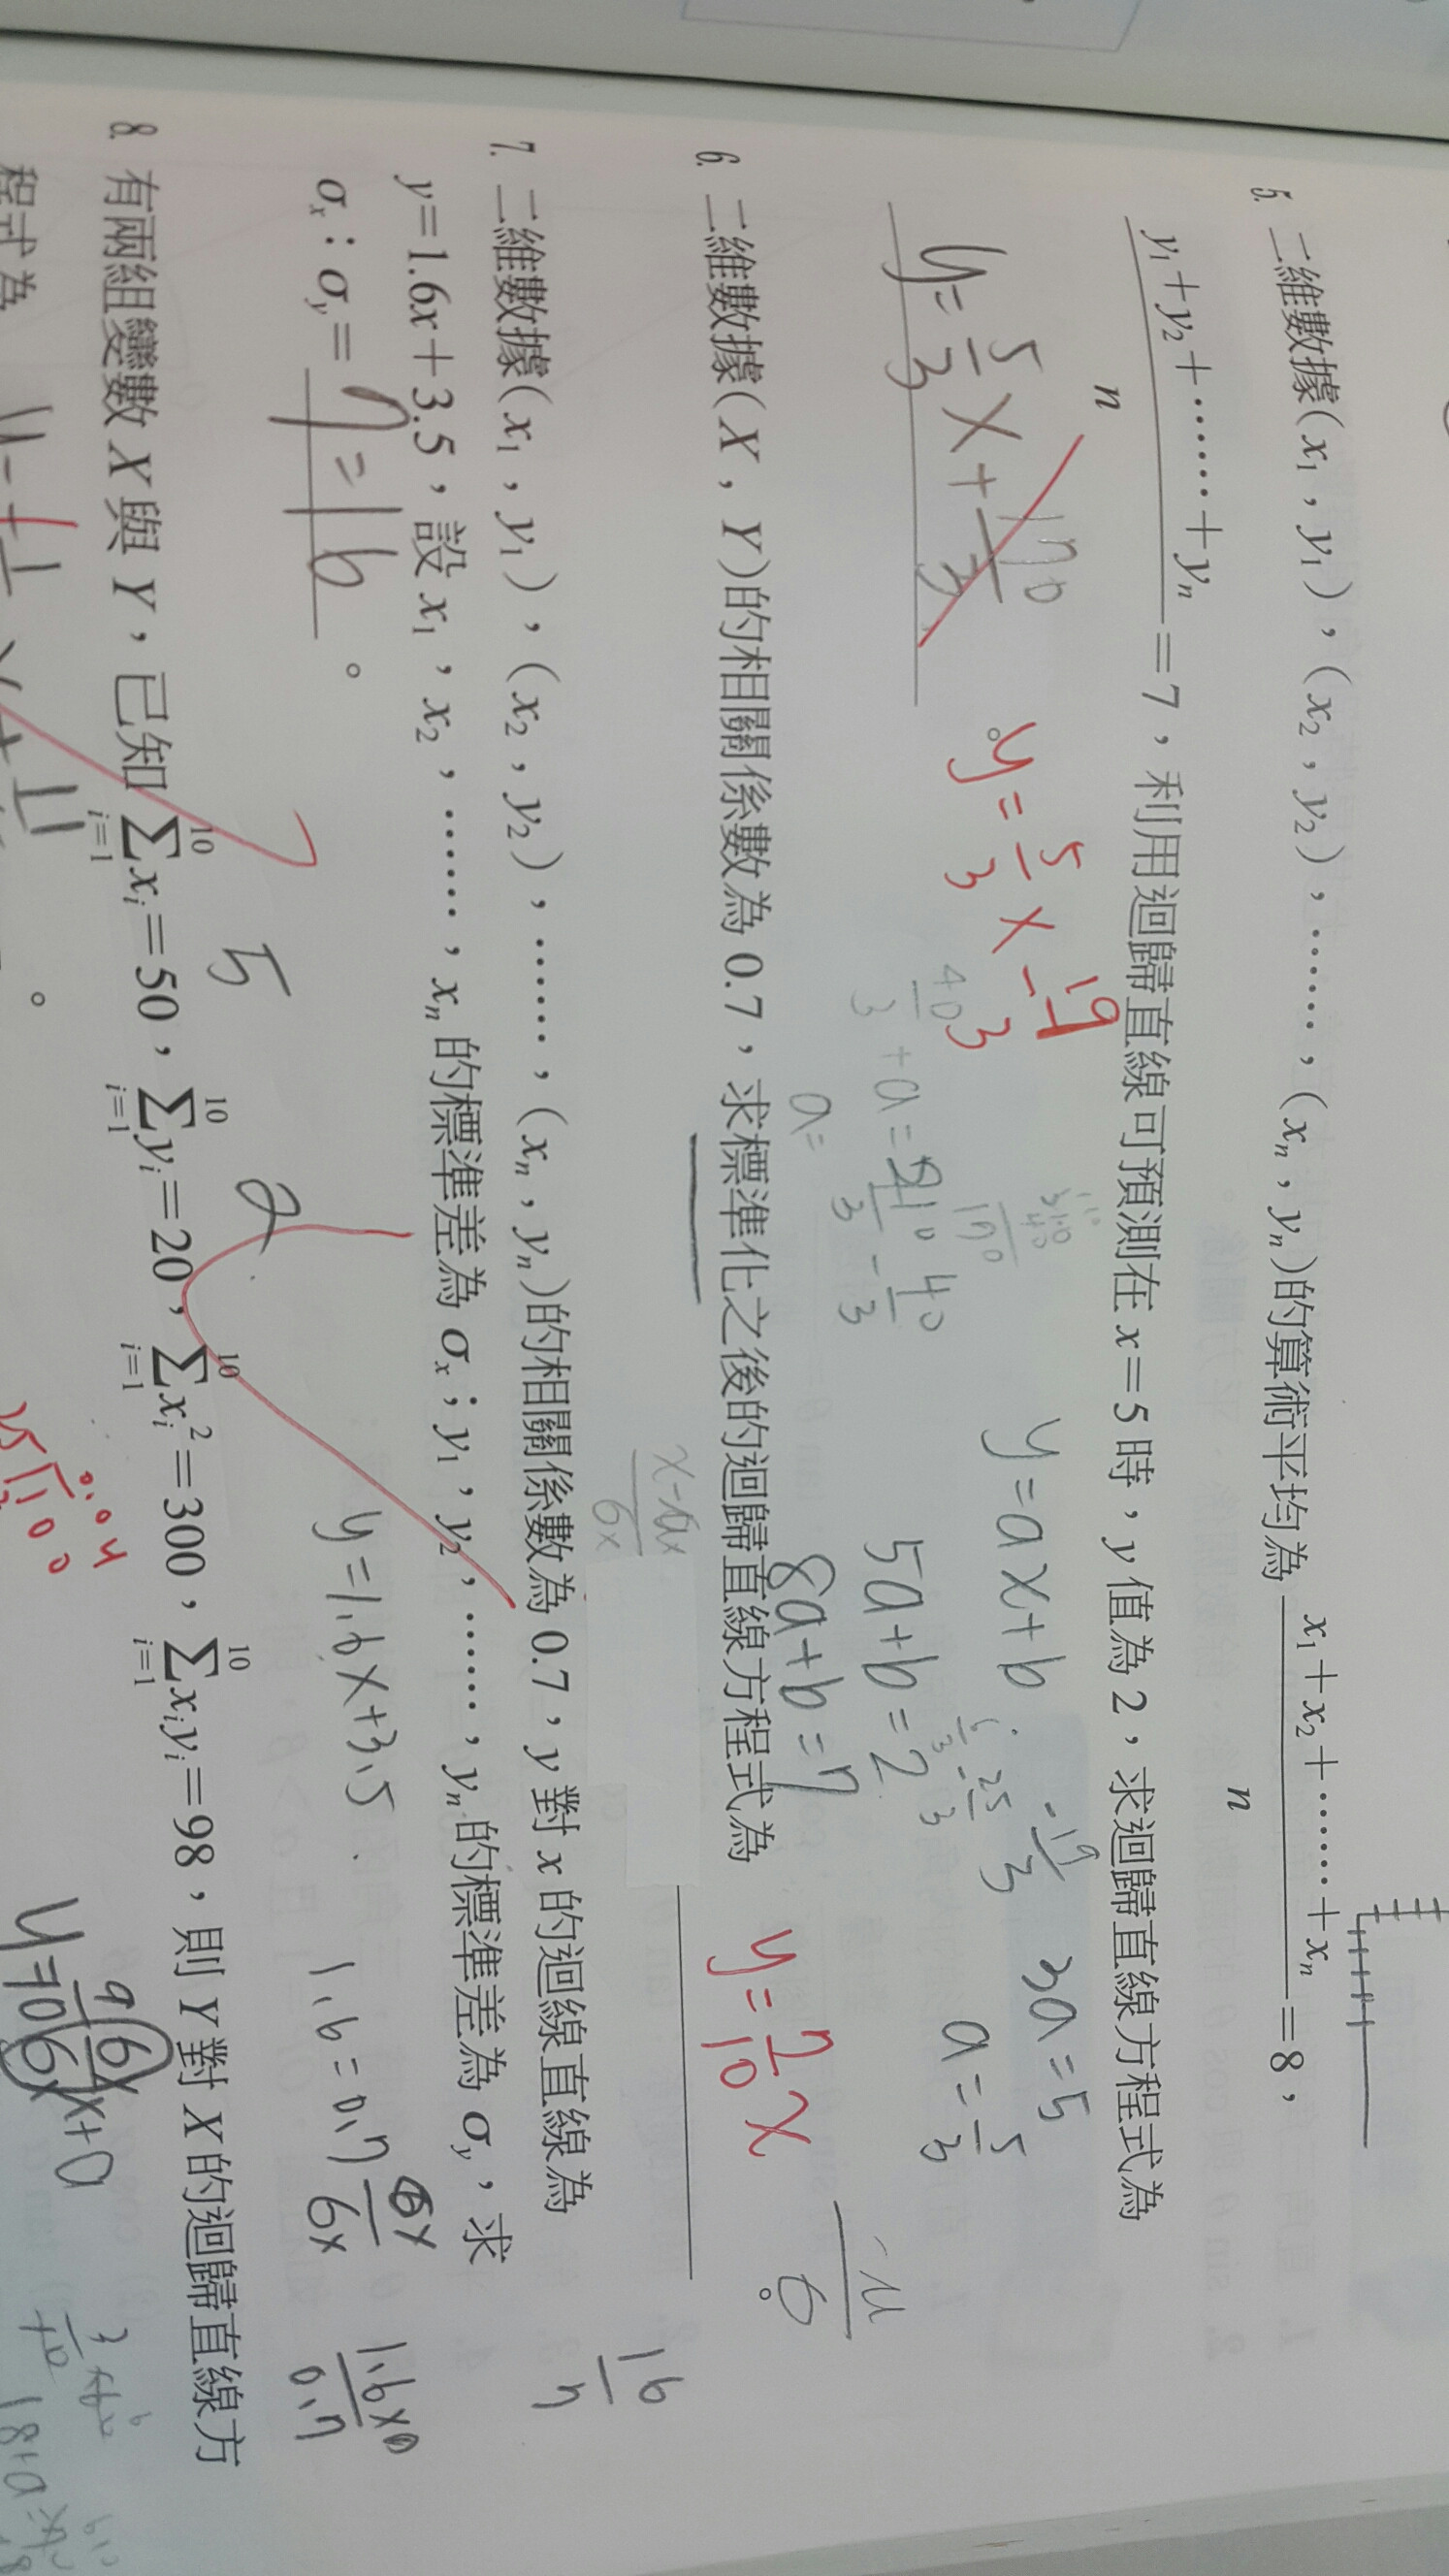 5. 二維數據(x₁, y₁), (x₂, y₂), ……, (xₙ, yₙ)的算術平均為 (x₁+x₂+……+xₙ)/n = 8,
(y₁+y₂+……+yₙ)/n = 7, 利用迴歸直線可預測在 x=5 時, y 值為 2, 求迴歸直線方程式為
y = 5/3 x + 170/3 。
y = 5/3 x - 19/3
y = ax+b
5a+b=2
8a+b=7
3a=5
a = 5/3
-19/3
6/3 - 25/3
40/3 + a = 210/3 - 40/3
a =
6. 二維數據(X, Y)的相關係數為 0.7, 求標準化之後的迴歸直線方程式為
。
y = 7/10 x
7. 二維數據(x₁, y₁), (x₂, y₂), ……, (xₙ, yₙ)的相關係數為 0.7, y 對 x 的迴線直線為
y=1.6x+3.5, 設 x₁, x₂, ……, xₙ 的標準差為 σₓ; y₁, y₂, ……, yₙ 的標準差為 σᵧ, 求
σₓ : σᵧ = 7=16 。
y=1.6x+3.5
16/7
5
2
8. 有兩組變數 X 與 Y, 已知 ∑(i=1→10) xᵢ=50, ∑(i=1→10) yᵢ=20, ∑(i=1→10) xᵢ²=300, ∑(i=1→10) xᵢyᵢ=98, 則 Y 對 X 的迴歸直線方
程式為
。
0.04